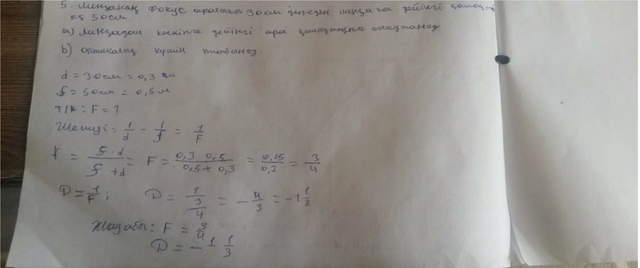 5. Линзаның фокус аралығы 30см денеден линзаға дейінгі қашықтық 50см.
а) Линзадан кескінге дейінгі ара қашықтықты анықтаңыз
b) оптикалық күшін табыңыз.
d = 30см = 0,3 м
f = 50см = 0,5 м
т/к: F = ?
Шешуі: 1/d - 1/f = 1/F
F = f·d / f+d = F = 0,3 · 0,5 / 0,5 + 0,3 = 0,15 / 0,2 = 3/4
D = 1/F; D = 1 / 3/4 = - 4/3 = -1 1/3
Жауабы: F = 3/4
D = - 1 1/3